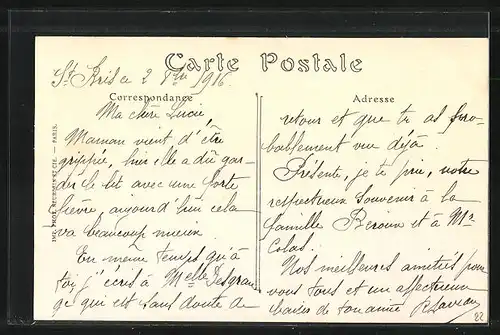 Carte Postale
St Bris le 2 1916
Correspondance
Ma chère Lucie,
Maman vient d'être
grippée, hier elle a dû gar-
der le lit avec une forte
fièvre, aujourd'hui cela
va beaucoup mieux
En même temps qu'à
toi, j'écris à Melle
ge qui est sans doute de
Adresse
retour et que tu as pro-
bablement vu déjà.
Présente, je te prie, notre
respectueux souvenir à la
famille et à Mr
Colas.
Nos meilleures amitiés pour
vous tous et un affectueux
baiser de ton amie
22